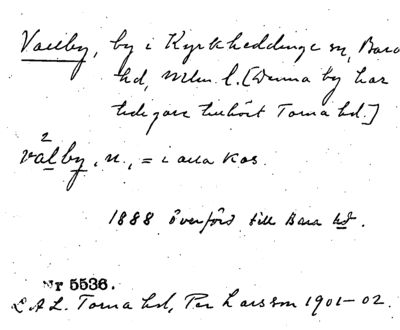 Vallby, by i Kyrkheddinge sn, Bara
hd, Mlm. l. [Denna by har
tidigare tillhört Torna hd.]
2
válby, n., = i alla kas.
1888 överförd till Bara hd.
Nr 5536.
L.A.L. Torna hd, Per Larsson 1901–02.